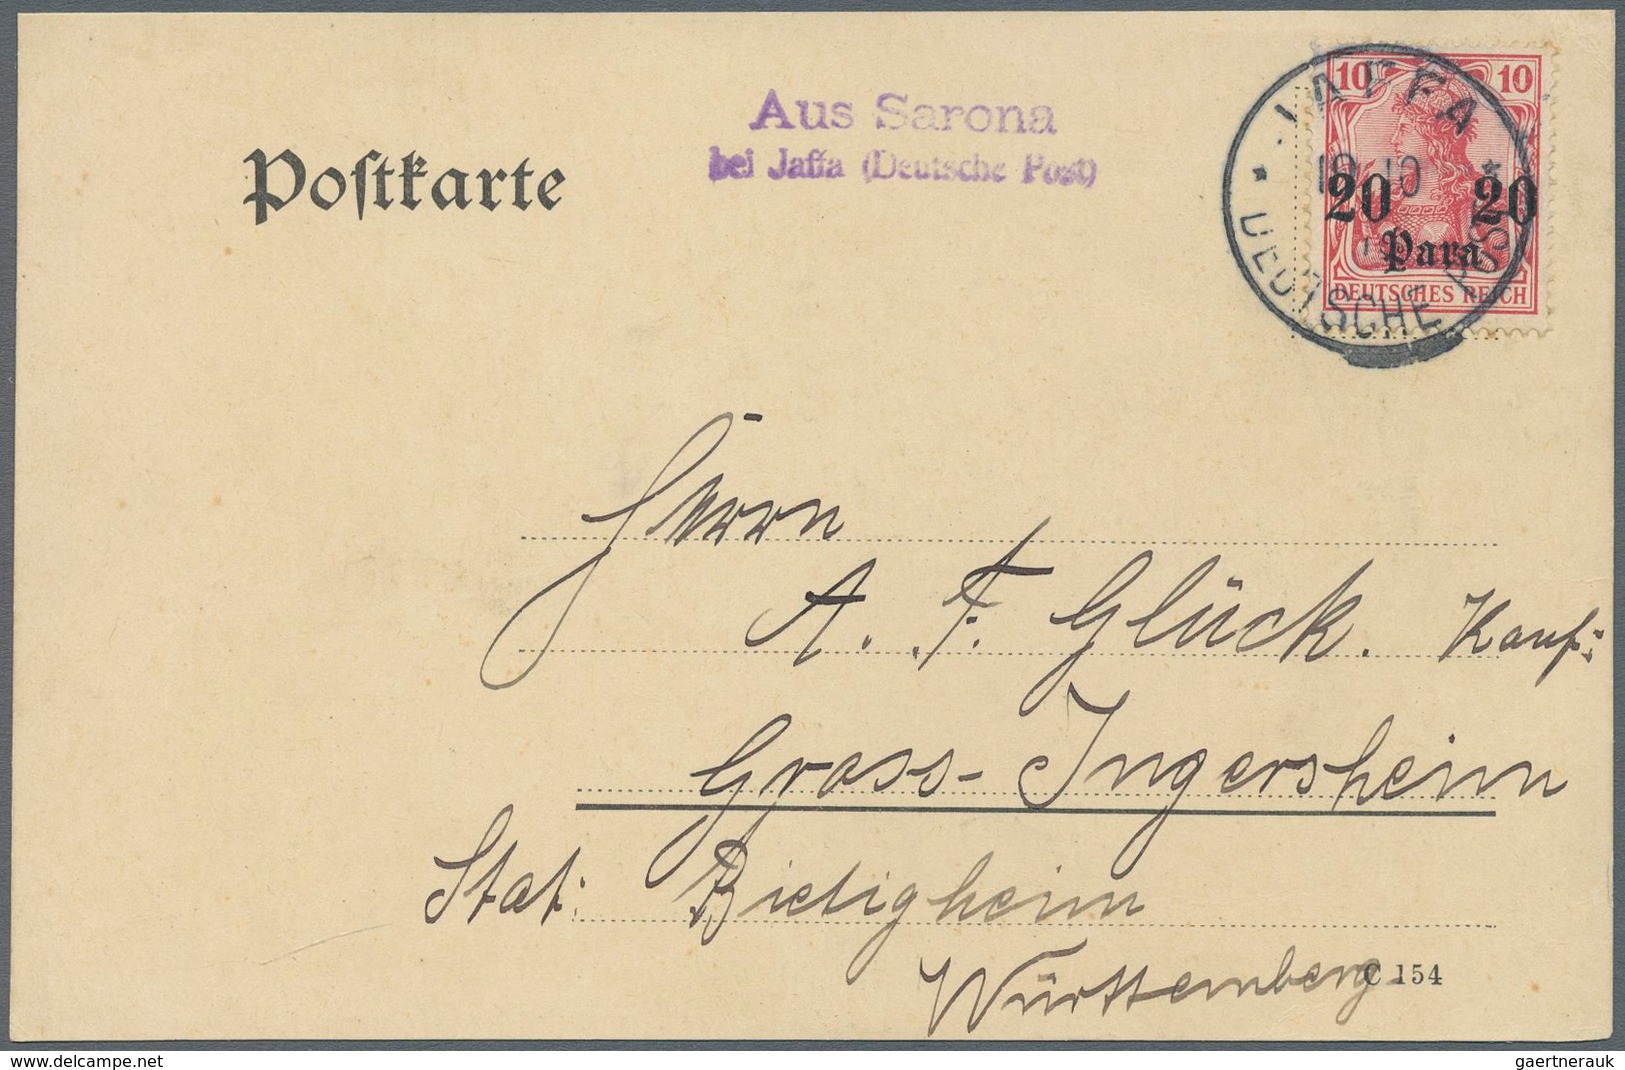 Aus Sarona
bei Jaffa (Deutsche Post)
Postkarte
10 10
JAFFA
10 10
DEUTSCHE POST
20 20
Para
DEUTSCHES REICH
Herrn
A. F. Glück. Kauf:
Gross-Ingersheim
Stat: Bietigheim
Württemberg
C 154
delcampe.net
gaertnerauk